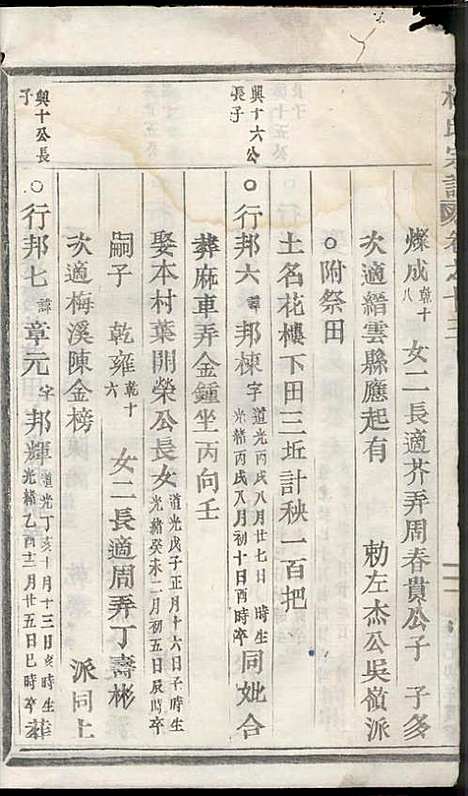 燦成 乾十八 女二長適芥弄周春貴公子 子多
次適縉雲縣應起有 勅左杰公吳嶺派
○附祭田
土名花樓下田三坵計秧一百把
興十六公長子
○行邦六 諱 邦棟 字 道光丙戌八月廿七日 時生 光緒丙戌八月初十日酉時卒 同妣合
葬麻車弄金鍾坐丙向壬
娶本村葉開榮公長女 道光戊子正月十六日子時生 光緒癸未二月初五日辰時卒
嗣子 乾雍 乾十六 女二長適周弄丁壽彬
次適梅溪陳金榜 派同上
興十公長子
○行邦七 諱 章元 字 邦輝 道光丁亥十月十三日亥時生 光緒乙酉十二月廿五日巳時卒 葬